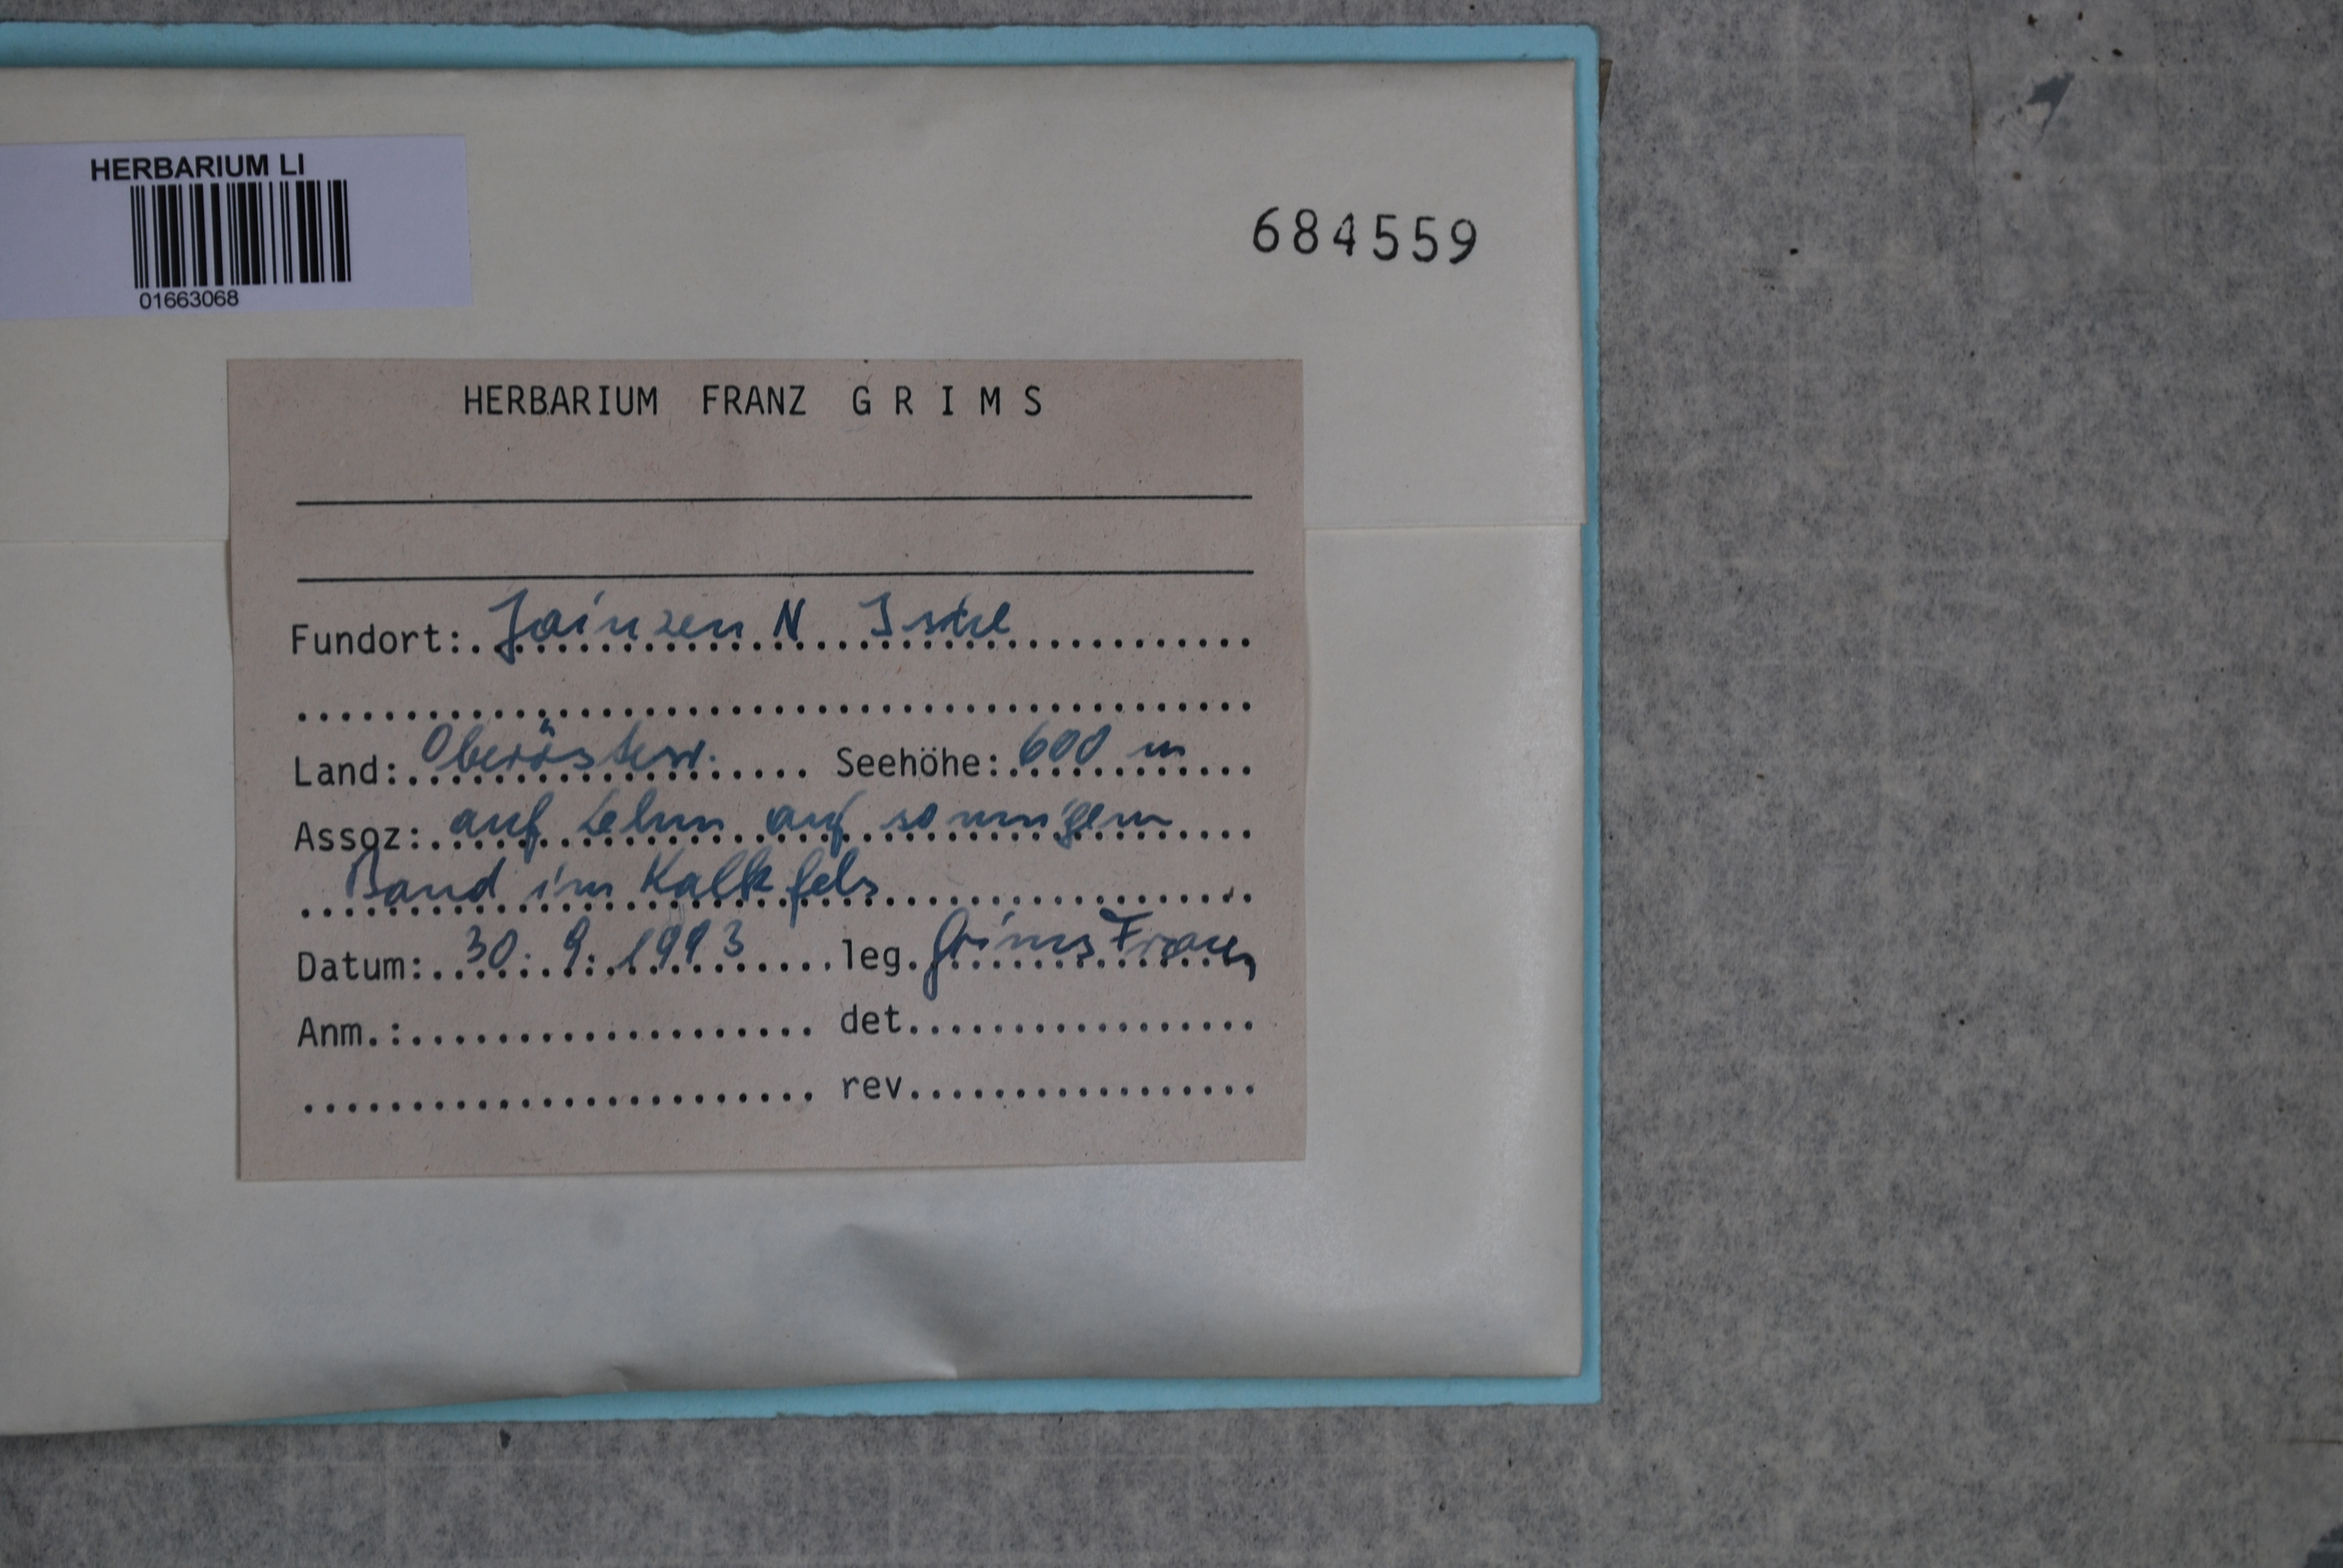 HERBARIUM LI
01663068
684559
HERBARIUM FRANZ GRIMS
Fundort: Jainzen N Ischl
Land: Oberösterr. Seehöhe: 600 m
Assoz: auf Lehm auf sonnigem
Band im Kalkfels
Datum: 30.9.1993 leg. Grims Franz
Anm.: det.
rev.